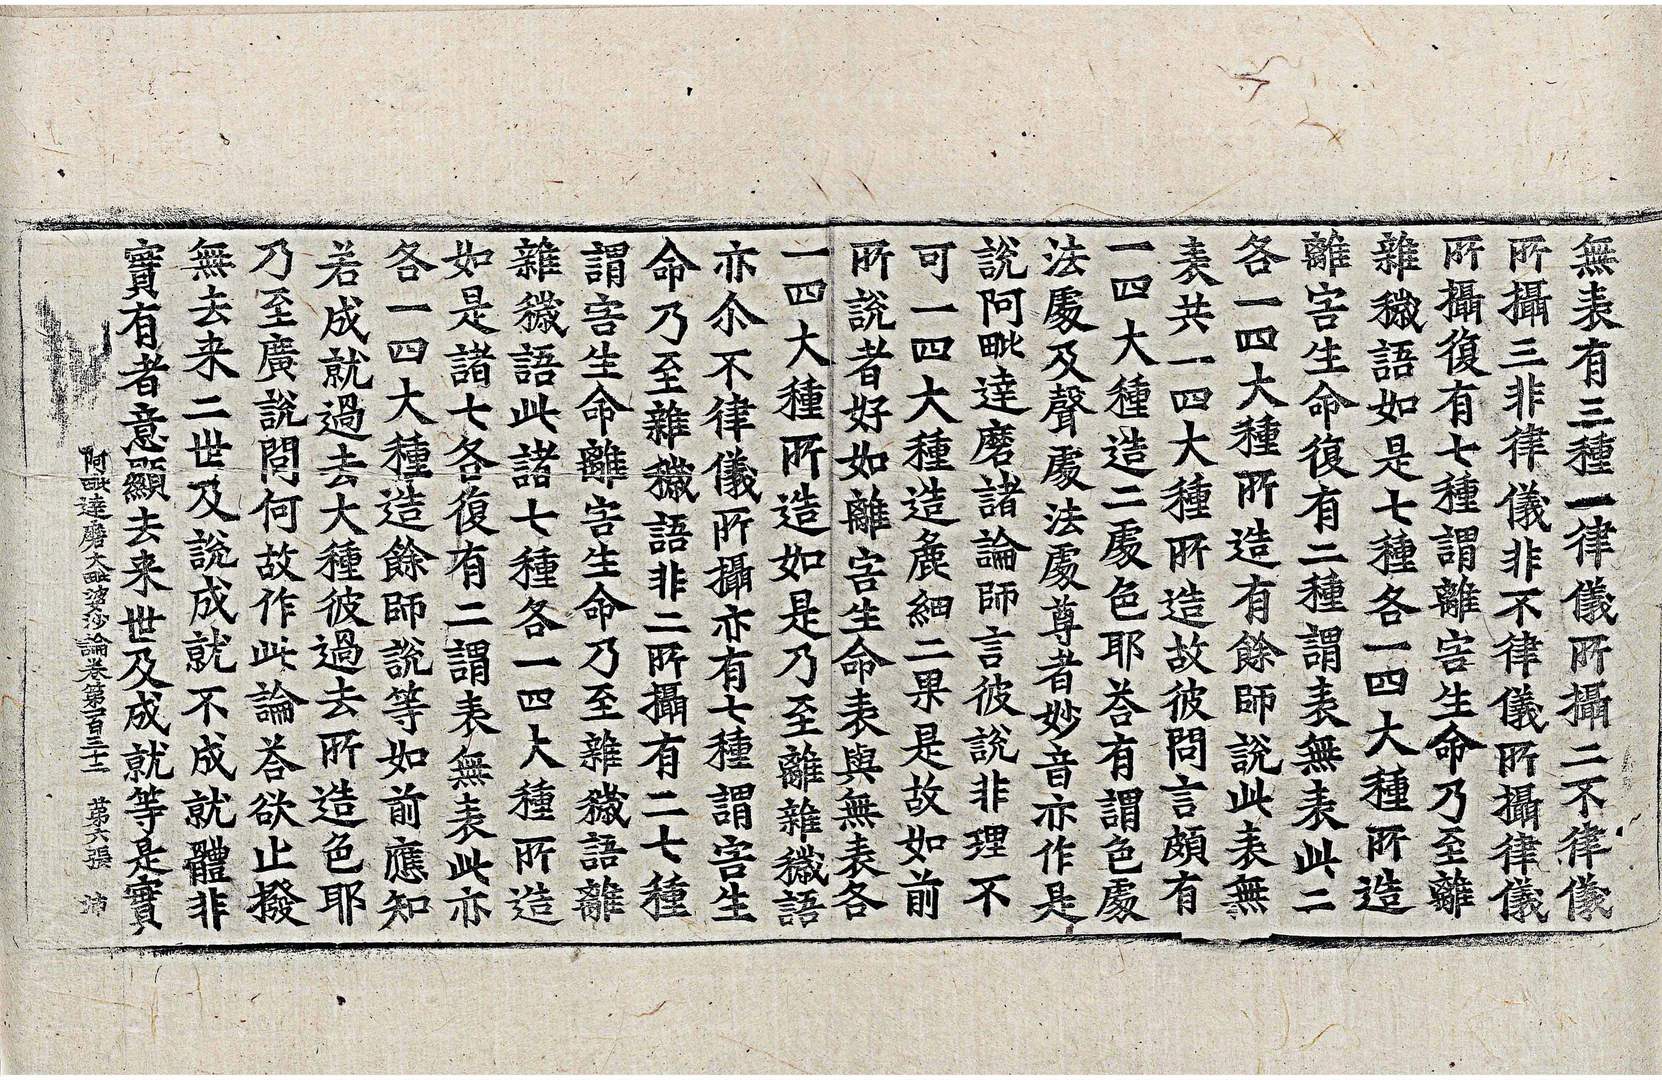 無表有三種一律儀所攝二不律儀
所攝三非律儀非不律儀所攝律儀
所攝復有七種謂離害生命乃至離
雜穢語如是七種各一四大種所造
離害生命復有二種謂表無表此二
各一四大種所造有餘師說此表無
表共一四大種所造故彼問言頗有
一四大種造二處色耶荅有謂色處
法處及聲處法處尊者妙音亦作是
說阿毗達磨諸論師言彼說非理不
可一四大種造麁細二果是故如前
所說者好如離害生命表與無表各
一四大種所造如是乃至離雜穢語
亦尒不律儀所攝亦有七種謂害生
命乃至雜穢語非二所攝有二七種
謂害生命離害生命乃至雜穢語離
雜穢語此諸七種各一四大種所造
如是諸七各復有二謂表無表此亦
各一四大種造餘師說等如前應知
若成就過去大種彼過去所造色耶
乃至廣說問何故作此論荅欲止撥
無去来二世及說成就不成就體非
實有者意顯去来世及成就等是實
阿毗達磨大毗婆沙論卷第一百三十二 第六張 沛